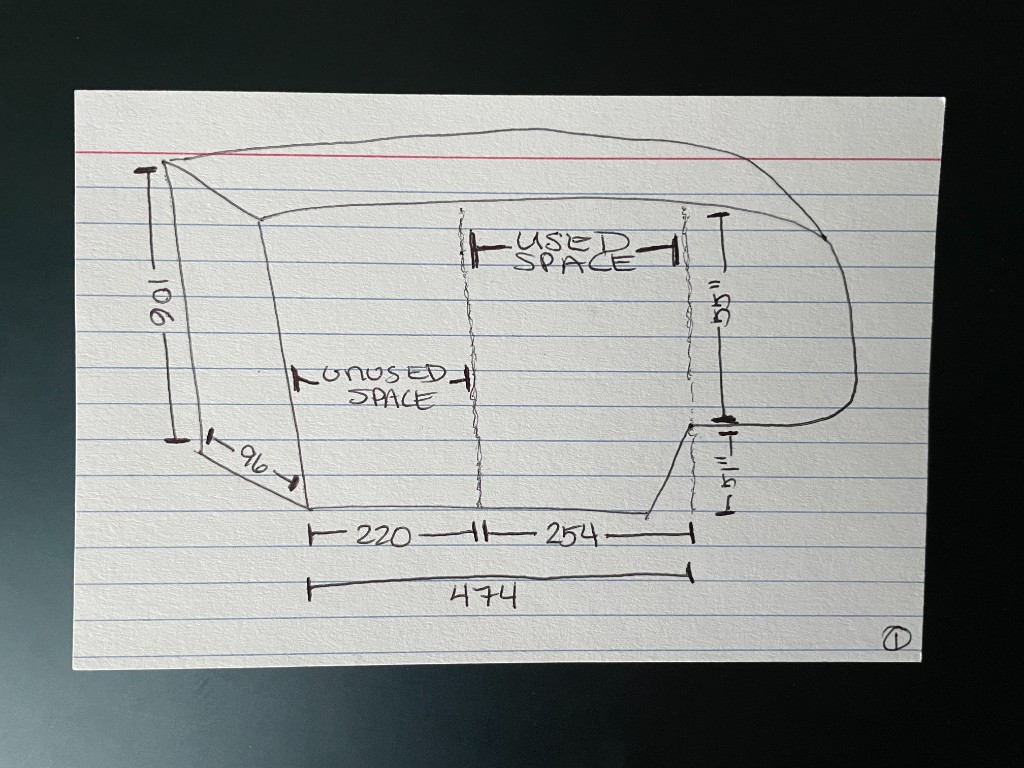 USED
SPACE
55"
106
UNUSED
SPACE
96
51"
220
254
474
1